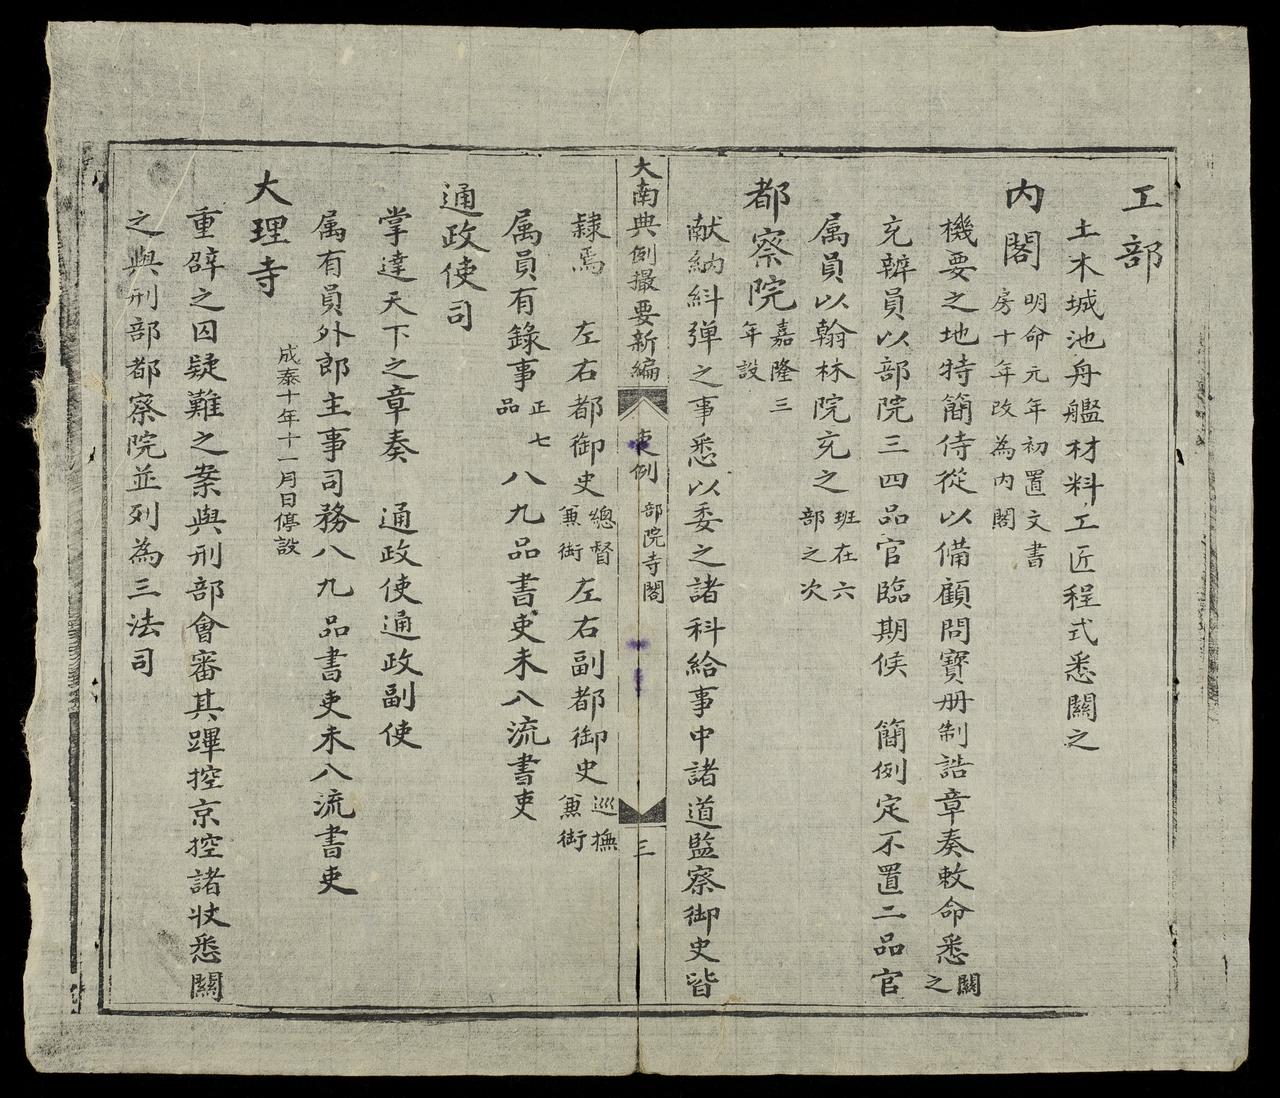 工部
土木城池舟艦材料工匠程式悉關之
內閣 明命元年初置文書
房十年改為內閣
機要之地特簡侍從以備顧問寶册制誥章奏敕命悉關之
充辦員以部院三四品官臨期候 簡例定不置二品官
属員以翰林院充之 班在六
部之次
都察院 嘉隆三
年設
献納糾弹之事悉以委之諸科給事中諸道監察御史皆
大南典例撮要新編 吏例 部院寺閣 三
隸焉 左右都御史 總督
兼銜 左右副都御史 巡撫
兼銜
属員有錄事 正七
品 八九品書吏未入流書吏
通政使司
掌達天下之章奏 通政使通政副使
属有員外郎主事司務八九品書吏未入流書吏
大理寺 成泰十年十一月日停設
重辟之囚疑難之案與刑部會審其蹕控京控諸狀悉關
之與刑部都察院並列為三法司